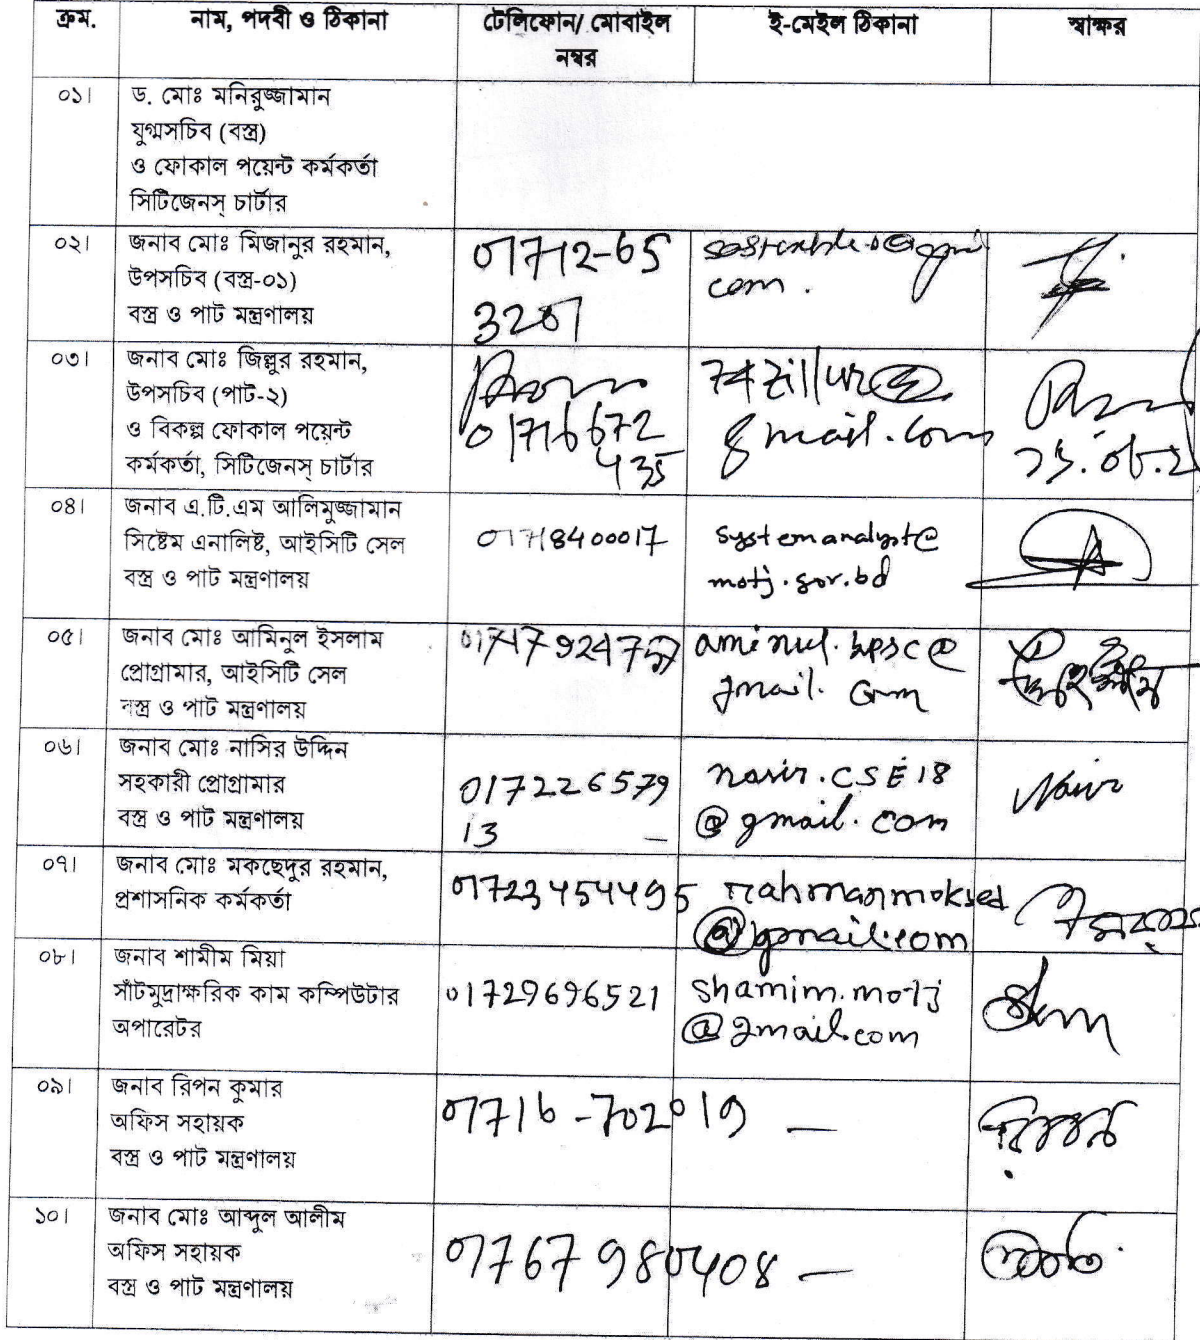 ক্রম. নাম, পদবী ও ঠিকানা টেলিফোন/ মোবাইল ই-মেইল ঠিকানা স্বাক্ষর
নম্বর
০১। ড. মোঃ মনিরুজ্জামান
যুগ্মসচিব (বস্ত্র)
ও ফোকাল পয়েন্ট কর্মকর্তা
সিটিজেনস্ চার্টার
০২। জনাব মোঃ মিজানুর রহমান,
উপসচিব (বস্ত্র-০১)
বস্ত্র ও পাট মন্ত্রণালয়
01712-65
com.
০৩। জনাব মোঃ জিল্লুর রহমান,
উপসচিব (পাট-২)
ও বিকল্প ফোকাল পয়েন্ট
কর্মকর্তা, সিটিজেনস্ চার্টার
01716672
435
74zillur@
gmail.com
০৪। জনাব এ.টি.এম আলিমুজ্জামান
সিষ্টেম এনালিষ্ট, আইসিটি সেল
বস্ত্র ও পাট মন্ত্রণালয়
01718400017
systemanalyst@
motj.gov.bd
০৫। জনাব মোঃ আমিনুল ইসলাম
প্রোগ্রামার, আইসিটি সেল
বস্ত্র ও পাট মন্ত্রণালয়
gmail.com
০৬। জনাব মোঃ নাসির উদ্দিন
সহকারী প্রোগ্রামার
বস্ত্র ও পাট মন্ত্রণালয়
017226579
13
nasir.CSE18
@gmail.com
Nasir
০৭। জনাব মোঃ মকছেদুর রহমান,
প্রশাসনিক কর্মকর্তা
01723454495
rahmanmoksed
@gmail.com
০৮। জনাব শামীম মিয়া
সাঁটমুদ্রাক্ষরিক কাম কম্পিউটার
অপারেটর
01729696521
shamim.motj
@gmail.com
০৯। জনাব রিপন কুমার
অফিস সহায়ক
বস্ত্র ও পাট মন্ত্রণালয়
01716-702019 —
১০। জনাব মোঃ আব্দুল আলীম
অফিস সহায়ক
বস্ত্র ও পাট মন্ত্রণালয়
01767980408 —